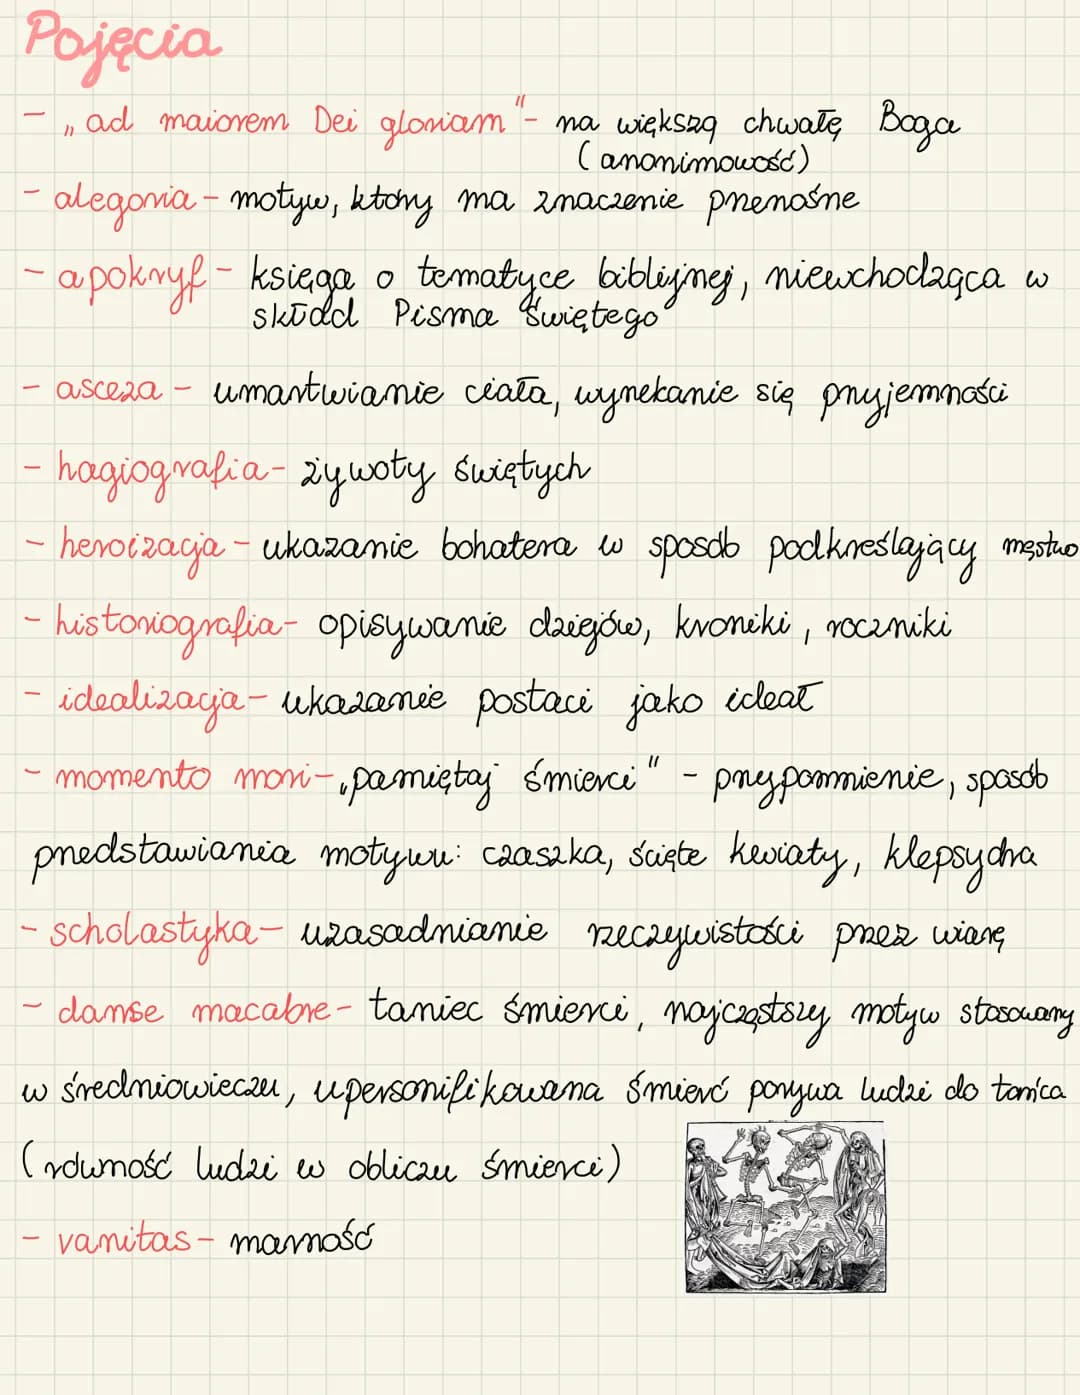 Pojęcia
- „ad maiorem Dei gloriam" - na większą chwałę Boga
(anonimowość)
- alegoria - motyw, który ma znaczenie przenośne
- apokryf - księga o tematyce biblijnej, niewchodząca w
skład Pisma Świętego
- asceza - umartwianie ciała, wyrzekanie się przyjemności
- hagiografia - żywoty świętych
- heroizacja - ukazanie bohatera w sposób podkreślający męstwo
- historiografia - opisywanie dziejów, kroniki, roczniki
- idealizacja - ukazanie postaci jako ideał
- momento mori - „pamiętaj śmierci" - przypomnienie, sposób
przedstawiania motywu: czaszka, ścięte kwiaty, klepsydra
- scholastyka - uzasadnianie rzeczywistości przez wiarę
- danse macabre - taniec śmierci, najczęstszy motyw stosowany
w średniowieczu, upersonifikowana śmierć porywa ludzi do tańca
(równość ludzi w obliczu śmierci)
- vanitas - marność